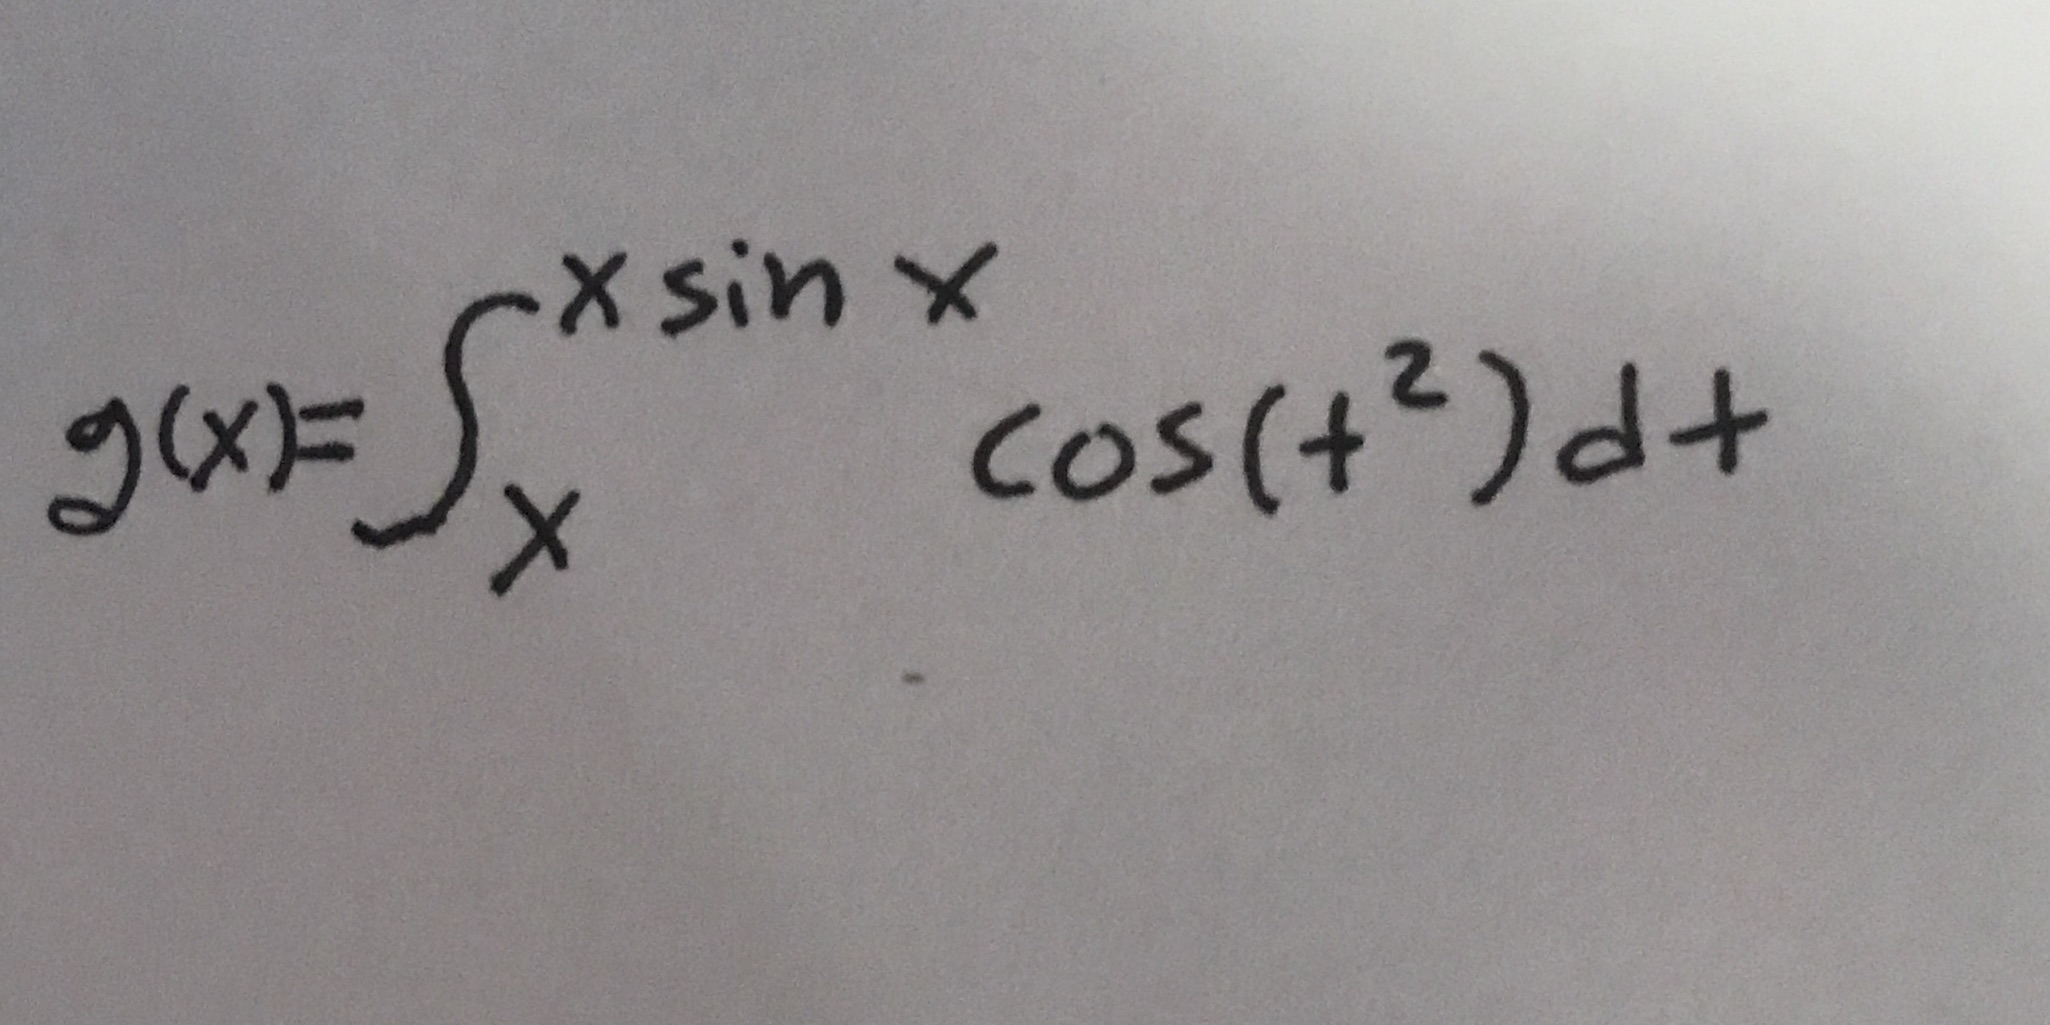 g(x)=∫_x^{x sin x} cos(t²)dt